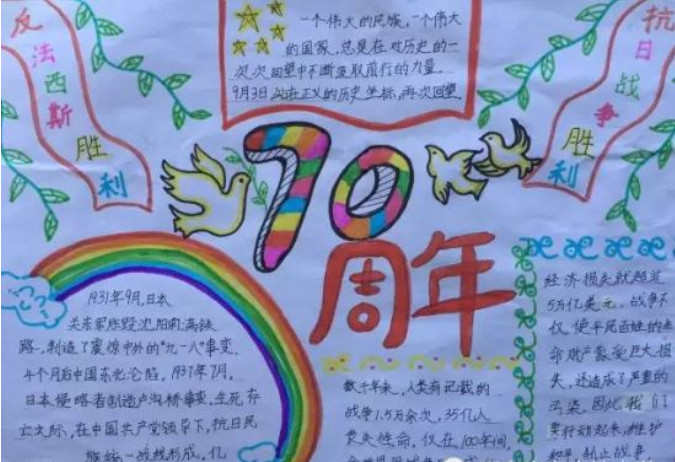 反法西斯胜利
一个伟大的民族,一个伟大
的国家,总是在对历史的一
次次回望中不断汲取前行的力量。
9月3日,站在正义的历史坐标,再次回望
抗日战争胜利
70
周年
1931年9月,日本
关东军炸毁沈阳南满铁
路,制造了震惊中外的"九一八"事变,
4个月后中国东北沦陷,1937年7月,
日本侵略者制造卢沟桥事变,生死存
亡之际,在中国共产党领导下,抗日民
族统一战线形成,亿
数千年来,人类有记载的
战争1.5万余次,35亿人
丧失性命,仅在100年间,
经济损失就超过
5万亿美元。战争不
仅使平民百姓的生
命财产蒙受巨大损
失,还造成了严重的
污染,因此,我们
要行动起来,维护
和平,制止战争